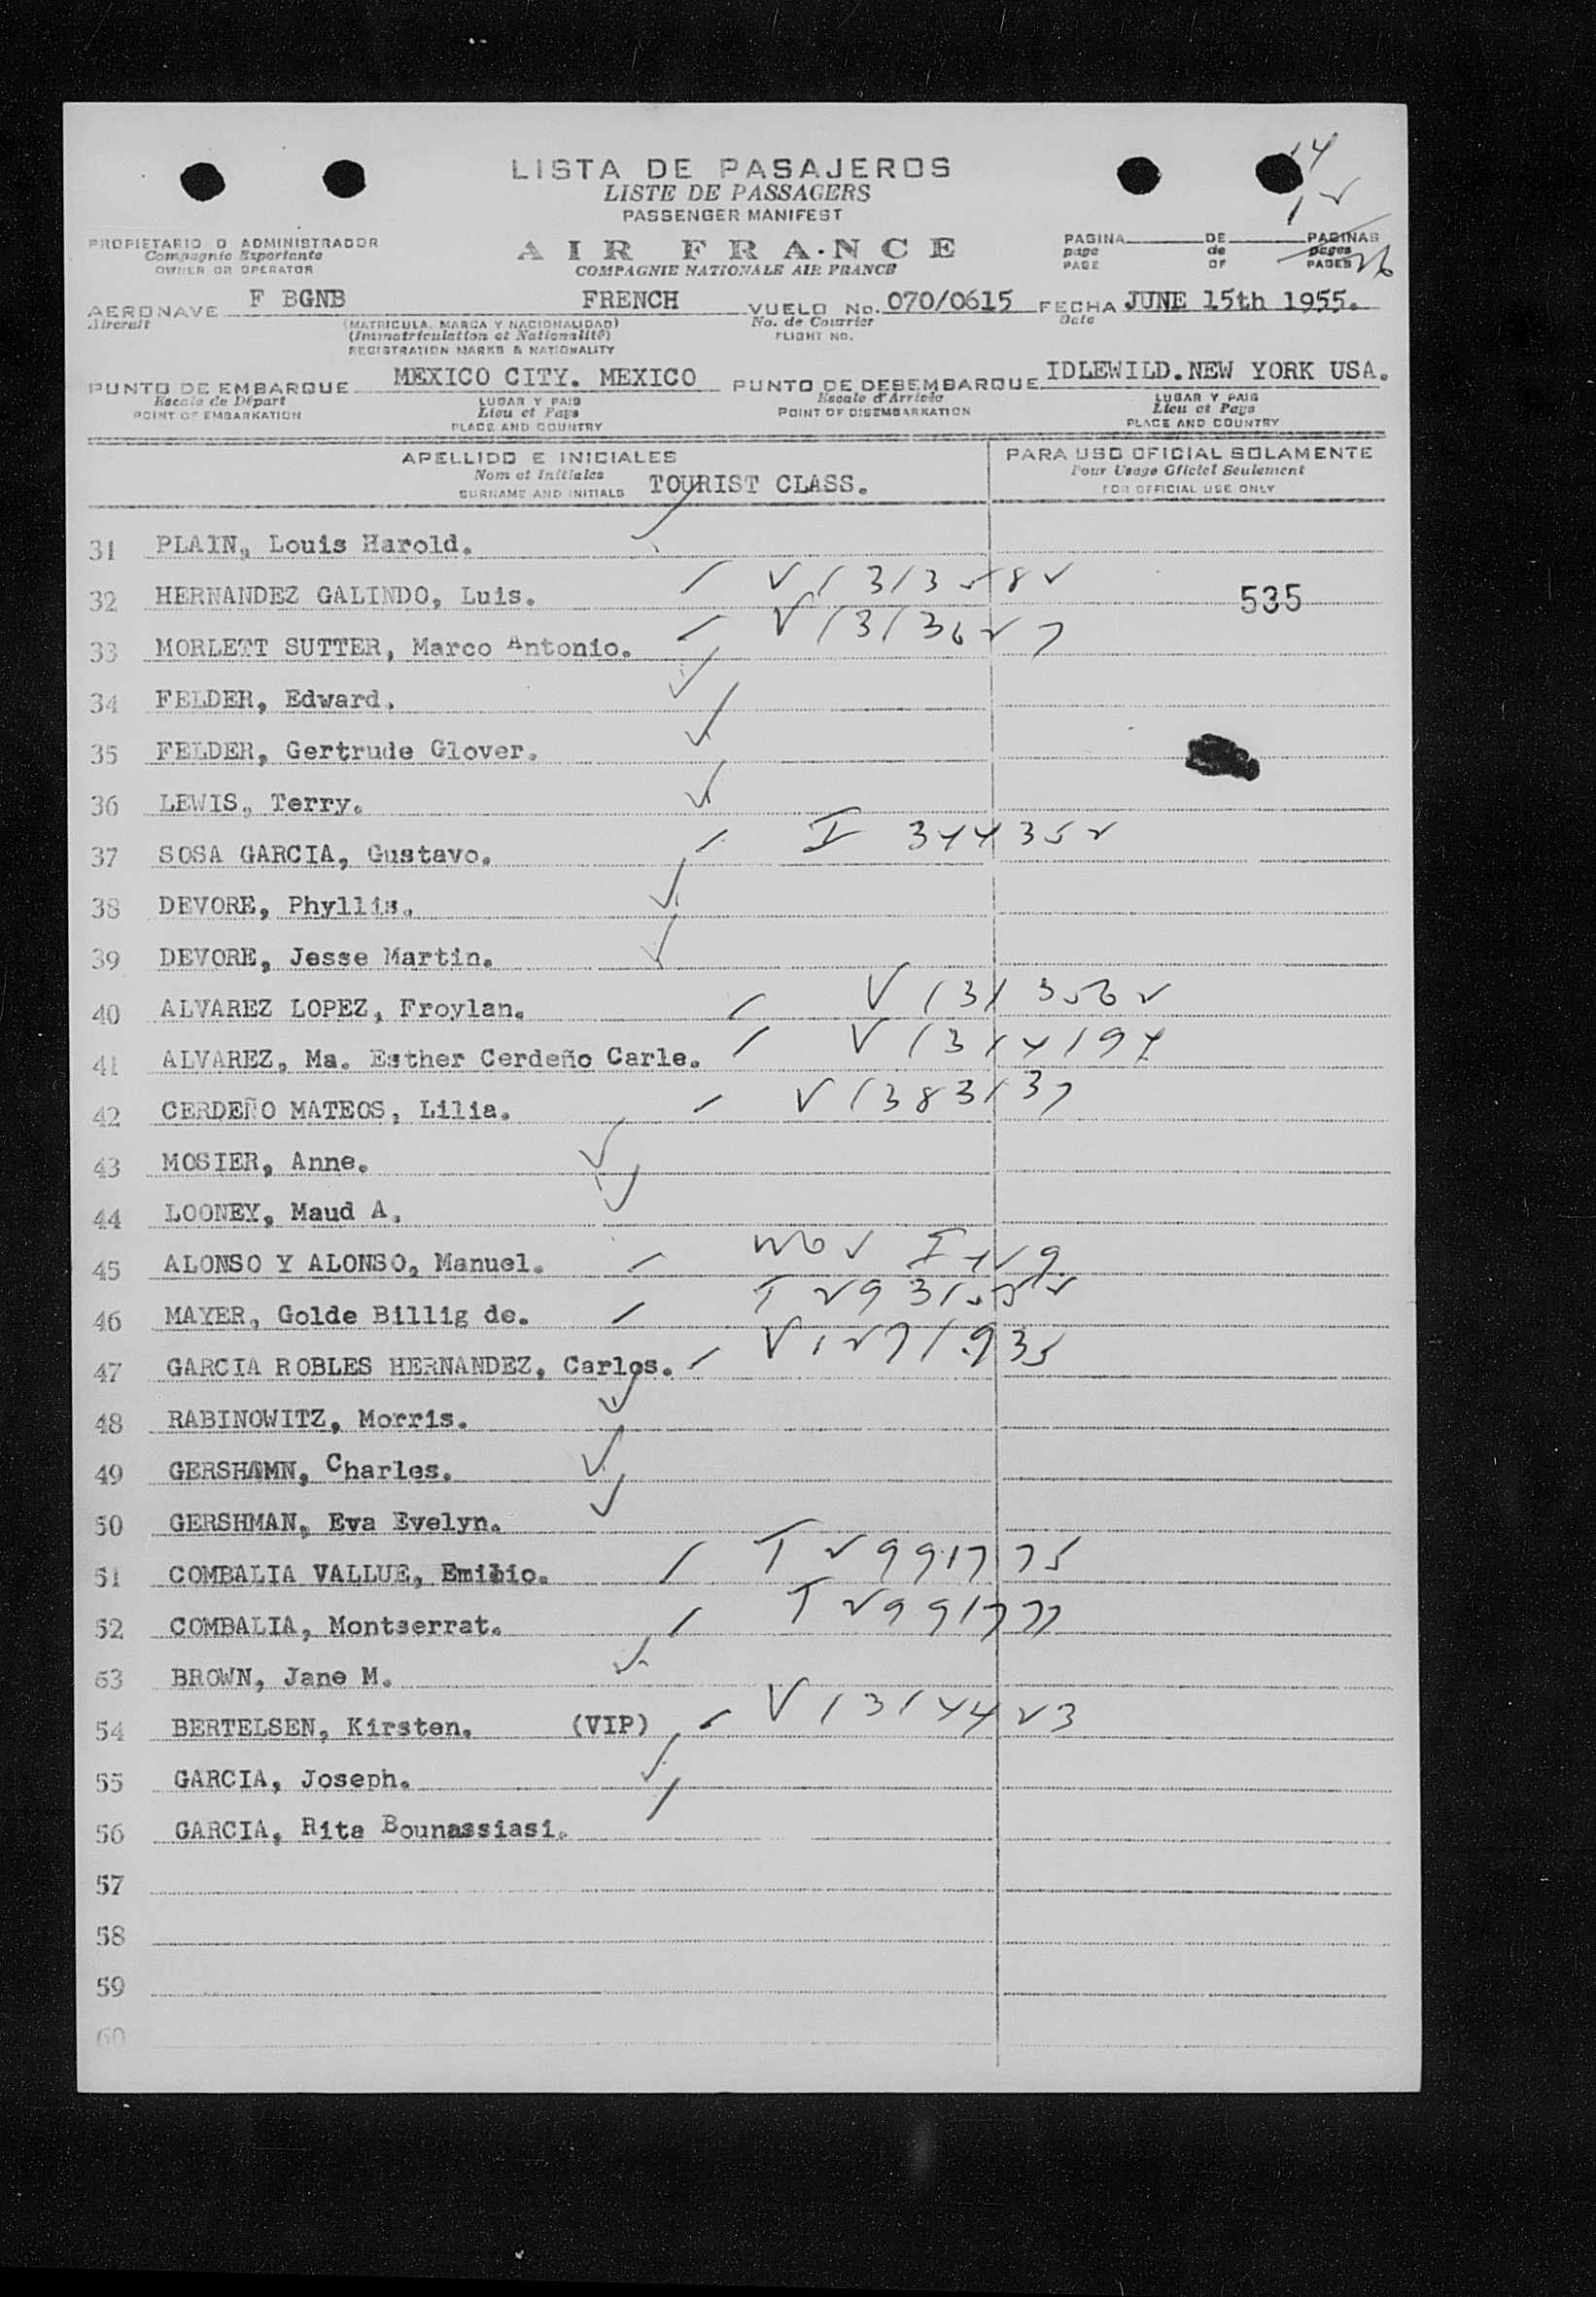 14
12
26
LISTA DE PASAJEROS
LISTE DE PASSAGERS
PASSENGER MANIFEST
PROPIETARIO O ADMINISTRADOR
Compagnie Exportante
OWNER OR OPERATOR
AIR FRANCE
COMPAGNIE NATIONALE AIR FRANCE
PAGINA DE PAGINAS
page de pages
PAGE OF PAGES
AERONAVE F BGNB FRENCH VUELO No. 070/0615 FECHA JUNE 15th 1955.
Aircraft (MATRICULA, MARCA Y NACIONALIDAD) No. de Courrier Date
(Immatriculation et Nationalité) FLIGHT NO.
REGISTRATION MARKS & NATIONALITY
PUNTO DE EMBARQUE MEXICO CITY. MEXICO PUNTO DE DESEMBARQUE IDLEWILD.NEW YORK USA.
Escale de Départ LUGAR Y PAIS Escale d'Arrivée LUGAR Y PAIS
POINT OF EMBARKATION Lieu et Pays POINT OF DISEMBARKATION Lieu et Pays
PLACE AND COUNTRY PLACE AND COUNTRY
APELLIDO E INICIALES PARA USO OFICIAL SOLAMENTE
Nom et Initiales Pour Usage Oficiel Seulement
SURNAME AND INITIALS TOURIST CLASS. FOR OFFICIAL USE ONLY
31 PLAIN, Louis Harold.
32 HERNANDEZ GALINDO, Luis. 535
33 MORLETT SUTTER, Marco Antonio. V1313627
34 FELDER, Edward.
35 FELDER, Gertrude Glover.
36 LEWIS, Terry.
37 SOSA GARCIA, Gustavo. I 344352
38 DEVORE, Phyllis.
39 DEVORE, Jesse Martin.
40 ALVAREZ LOPEZ, Froylan. V1313562
41 ALVAREZ, Ma. Esther Cerdeño Carle. V1314194
42 CERDEÑO MATEOS, Lilia. V1383137
43 MOSIER, Anne.
44 LOONEY, Maud A.
45 ALONSO Y ALONSO, Manuel.
46 MAYER, Golde Billig de.
47 GARCIA ROBLES HERNANDEZ, Carlos. V1271935
48 RABINOWITZ, Morris.
49 GERSHAMN, Charles.
50 GERSHMAN, Eva Evelyn.
51 COMBALIA VALLUE, Emilio. T2991775
52 COMBALIA, Montserrat. T2991777
53 BROWN, Jane M.
54 BERTELSEN, Kirsten. (VIP) V1314423
55 GARCIA, Joseph.
56 GARCIA, Rita Bounassiasi.
57
58
59
60